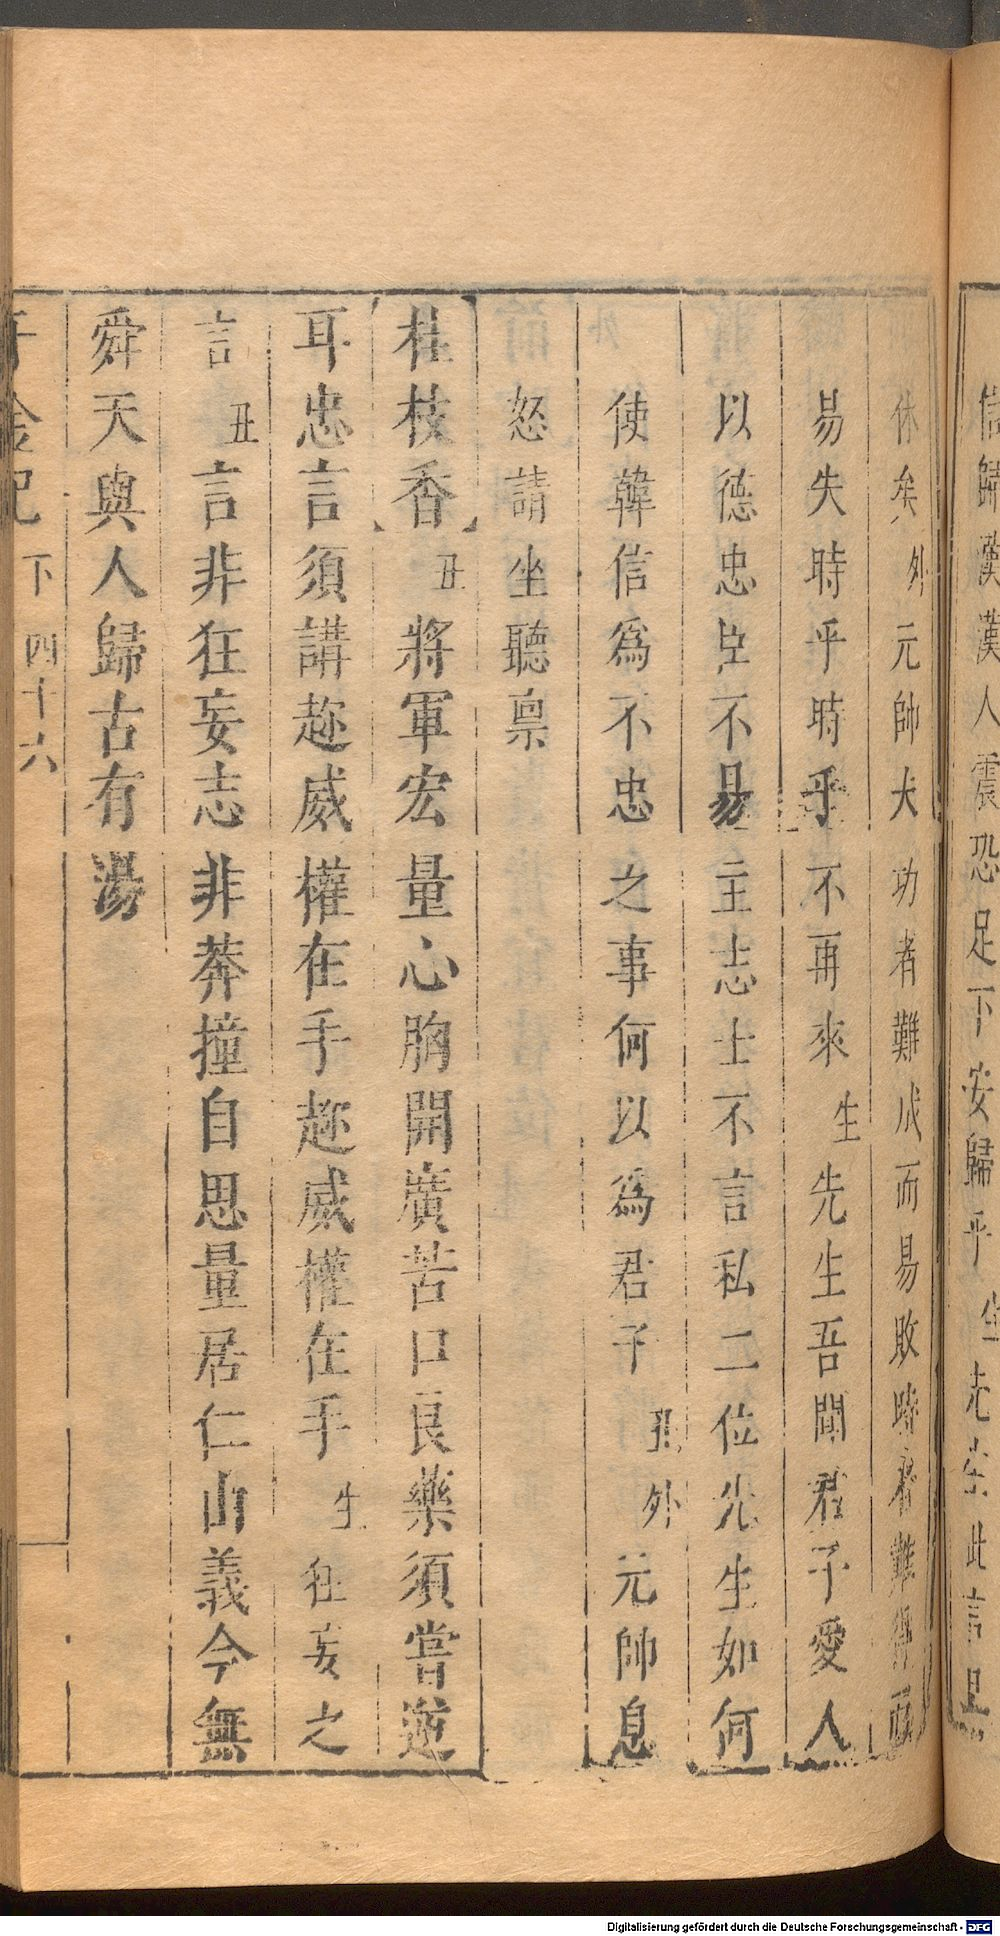 信歸漢漢人震恐足下安歸乎生先生此言足
休矣外元帥夫功者難成而易敗時者難得而
易失時乎時乎不再來生先生吾聞君子愛人
以德忠臣不易主志士不言私二位先生如何
使韓信爲不忠之事何以爲君子丑外元帥息
怒請坐聽禀
桂枝香丑將軍宏量心胸開廣苦口良藥須當逆
耳忠言須講趂威權在手趂威權在手生狂妄之
言丑言非狂妄志非莽撞自思量居仁由義今無
舜天與人歸古有湯
千金記 下 四十六
Digitalisierung gefördert durch die Deutsche Forschungsgemeinschaft - DFG